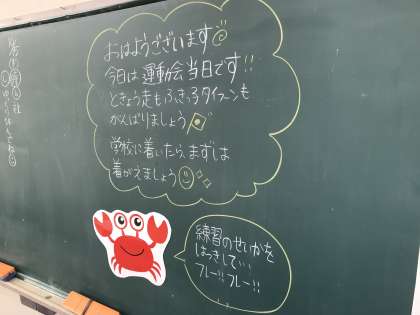 おはようございます
今日は運動会当日です!!
ときょう走もふきふきタイフーンも
がんばりましょう
学校に着いたら、まずは
着がえましょう
練習のせいかを
はっきして…
フレー!!フレー!!